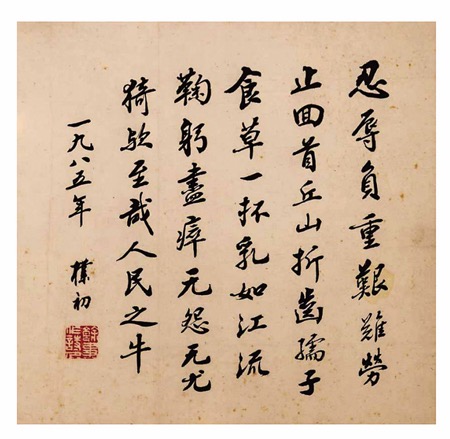 忍辱負重艱難勞
止回首丘山折齒孺子
食草一抔乳如江流
鞠躬盡瘁无怨无尤
猗欤至哉人民之牛
一九八五年 樸初